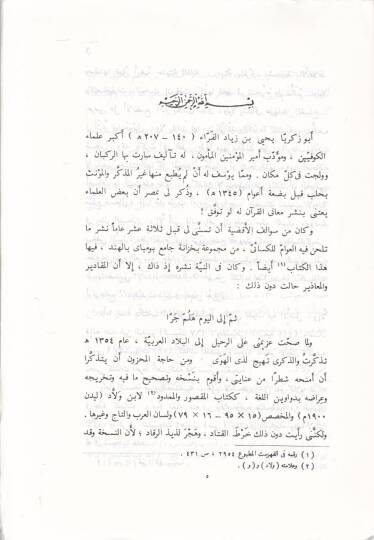 بسم الله الرحمن الرحيم
أبو زكريّا يحيى بن زياد الفَرّاء ( ١٤٠ – ٢٠٧ ه ) أكبر علماء
الكوفيّين ، ومؤدّب أمير المؤمنين المأمون ، له تآليف سارت بها الركبان ،
وولجت فى كلّ مكان . وممّا يوسف له أنْ لم يُطبع منها غيرُ المذكّر والمونّث
بحلب قبل بضعة أعوام ( ١٣٤٥ ه ) ، وذُكر لى بمصر أن بعض العلماء
يعتنى بنشر معانى القرآن له لو توفّق !
وكان من سوالف الأقضية أن تسنّى لى قبل ثلاثة عشر عاماً نشر ما
تلحن فيه العوامّ للكسائىّ ، من مجموعة بخزانة جامع بومباى بالهند ، فيها
هذا الكتاب(١) أيضاً . وكان فى النيّة نشره إذ ذاك ، إلا أن المقادير
والمعاذير حالت دون ذلك :
ثمّ إلى اليوم هَلُمّ جَرّا
ولمّا صحّت عزيمتى على الرحيل إلى البلاد العربيّة ، عام ١٣٥٤ ه
تذكّرتُ والذكرى تَهيج لذى الهَوَى ومن حاجة المحزون أن يتذكّرا
أن أمنحه شطرًا من عنايتى ، وأقوم بنَسْخه وتصحيح ما فيه وتخريجه
وعِراضه بدواوين اللغة ، ككتاب المقصور والممدود(٢) لابن وَلّاد (ليدن
١٩٠٠م) والمخصص (١٥ × ٩٥ – ١٦ × ٧٩) ولسان العرب والتاج وغيرها .
ولكنّنى رأيت دون ذلك خَرْطَ القتاد ، وهَجْرَ لذيذ الرقاد ؛ لأن النسخة وقد
(١) رقمه فى الفهرست المطبوع ٢٩٥٤ ، ص ٤٣١ .
(٢) وعلامته (ولاد) و (و) .
٥